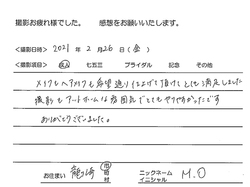 撮影お疲れ様でした。 感想をお願いいたします。
撮影日時》 2021 年 2 月 26 日 (金)
撮影項目》 成人 七五三 ブライダル 記念 その他
メイクもヘアメイクも希望通り仕上げて頂けてとても満足しました
撮影もアットホームな雰囲気でとてもやりやすかったです
ありがとうございました。
お住まい 龍ヶ崎 市町村 ニックネーム イニシャル M.O